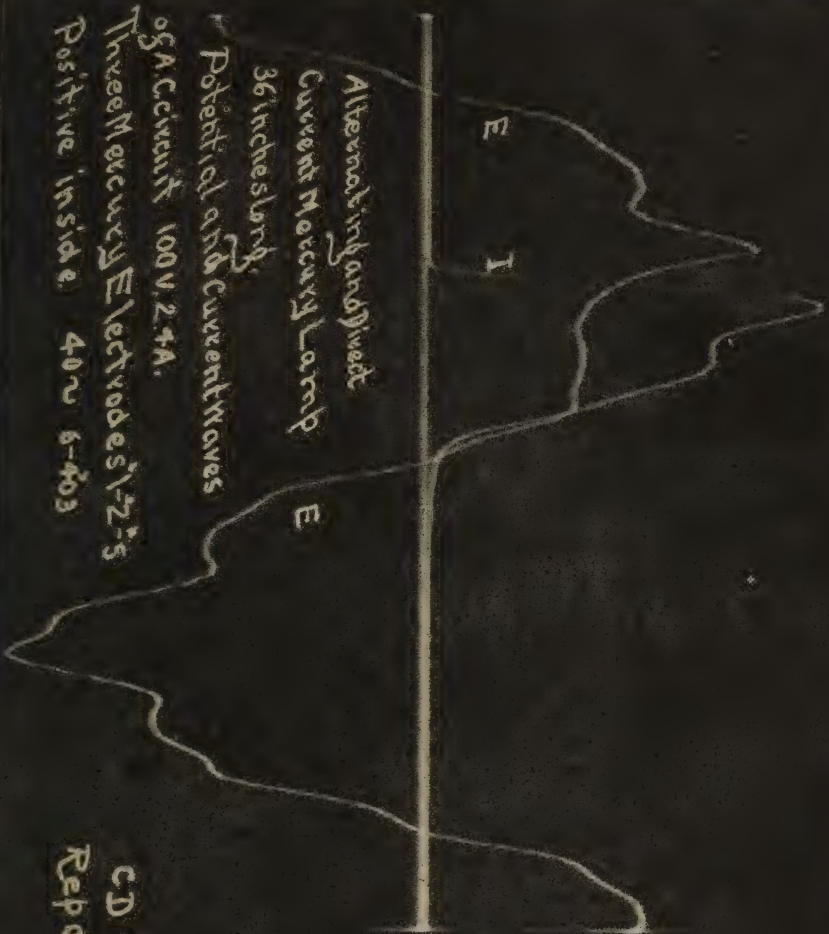 E
I
E
Alternating and Direct
Current Mercury Lamp
36 inches long.
Potential and Current Waves
of A.C. circuit 100 V. 2.4 A.
Three Mercury Electrodes
CD
Positive inside 40~
Repo